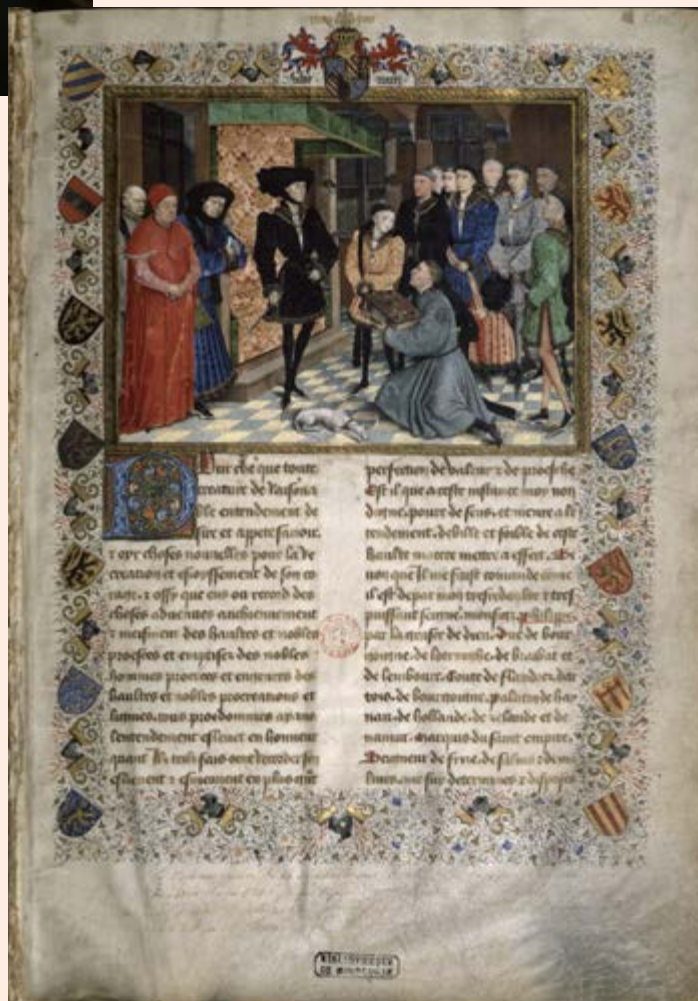 Pour che que toute
creature de raisona
ble entendement de
sire et appete sauoir
z oyr choses nouuelles pour la re
creation et esioyssement de son co
rage . z ossy que ou record des
choses aduenues anchiennement
z meisment des haultes et nobles
proesces et emprises des nobles
hommes et engenres des
haultes et nobles procreations et
lignies. tous preodommes ayans
lentendement esleuet en honneur
quant telz fais oent recorder sen
eslieuent z esmeuuent en plus
perfection de valeur z de proesche
Est il que a ceste instance moy non
digne. poure de sens. et
tendement. debille et foible de ceste
haulte matere mettre a effect. Se
non que il me fuist comande come
il est de par mon tresredoubte z tres
puissant seigneur. monseigneur phelippe
par la grasce de dieu. Duc de bour
goigne. de lothrijche. de brabant et
de lembourc. Conte de flandres. dar
tois. de bourgoingne. palatin de hay
nau. de hollande. de zelande et de
namur. Marquis du saint empire.
Seigneur de frise. de salins z de ma
lines. me suy determines z disposes
BIBLIOTHEQUE
DE BOURGOGNE